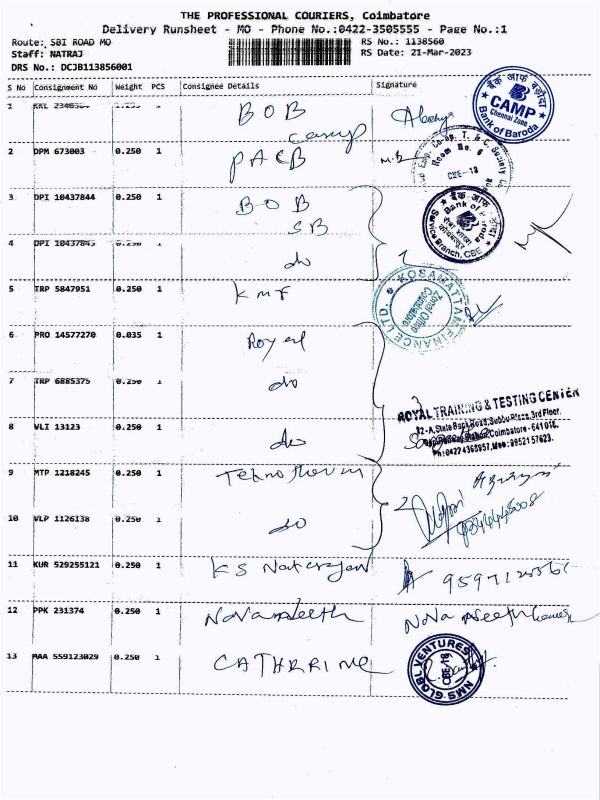 THE PROFESSIONAL COURIERS, Coimbatore
Delivery Runsheet - MO - Phone No.:0422-3505555 - Page No.:1
Route: SBI ROAD MO RS No.: 1138560
Staff: NATRAJ RS Date: 21-Mar-2023
DRS No.: DCJB113856001
S No Consignment No Weight PCS Consignee Details Signature
1 KKL 1 BOB
camp
बैंक ऑफ़ बड़ौदा
CAMP
Chennai Zone
Bank of Baroda
2 DPM 673003 0.250 1 PACB M.B
Room No. 6
CBE-18
3 DPI 10437844 0.250 1 BOB
SB
Bank of
Service Branch, CBE
4 DPI 10437845 0.250 1 do
5 TRP 5847951 0.250 1 KMF
KOSAMATTAM FINANCE LTD.
Zonal Office
Coimbatore
6 PRO 14577270 0.035 1 Royal
7 TRP 6885375 0.250 1 do
ROYAL TRAINING & TESTING CENTER
32-A, State Bank Road, Subbu Plaza, 3rd Floor,
Coimbatore - 641018.
8 VLI 13123 0.250 1 do
9 MTP 1218245 0.250 1
10 VLP 1126138 0.250 1 do
11 KUR 529255121 0.250 1 KS Natarajan
12 PPK 231374 0.250 1 Navaneeth Navaneeth
13 MAA 559123029 0.250 1 CATHRRINE
NMS GLOBL VENTURES
CBE-18